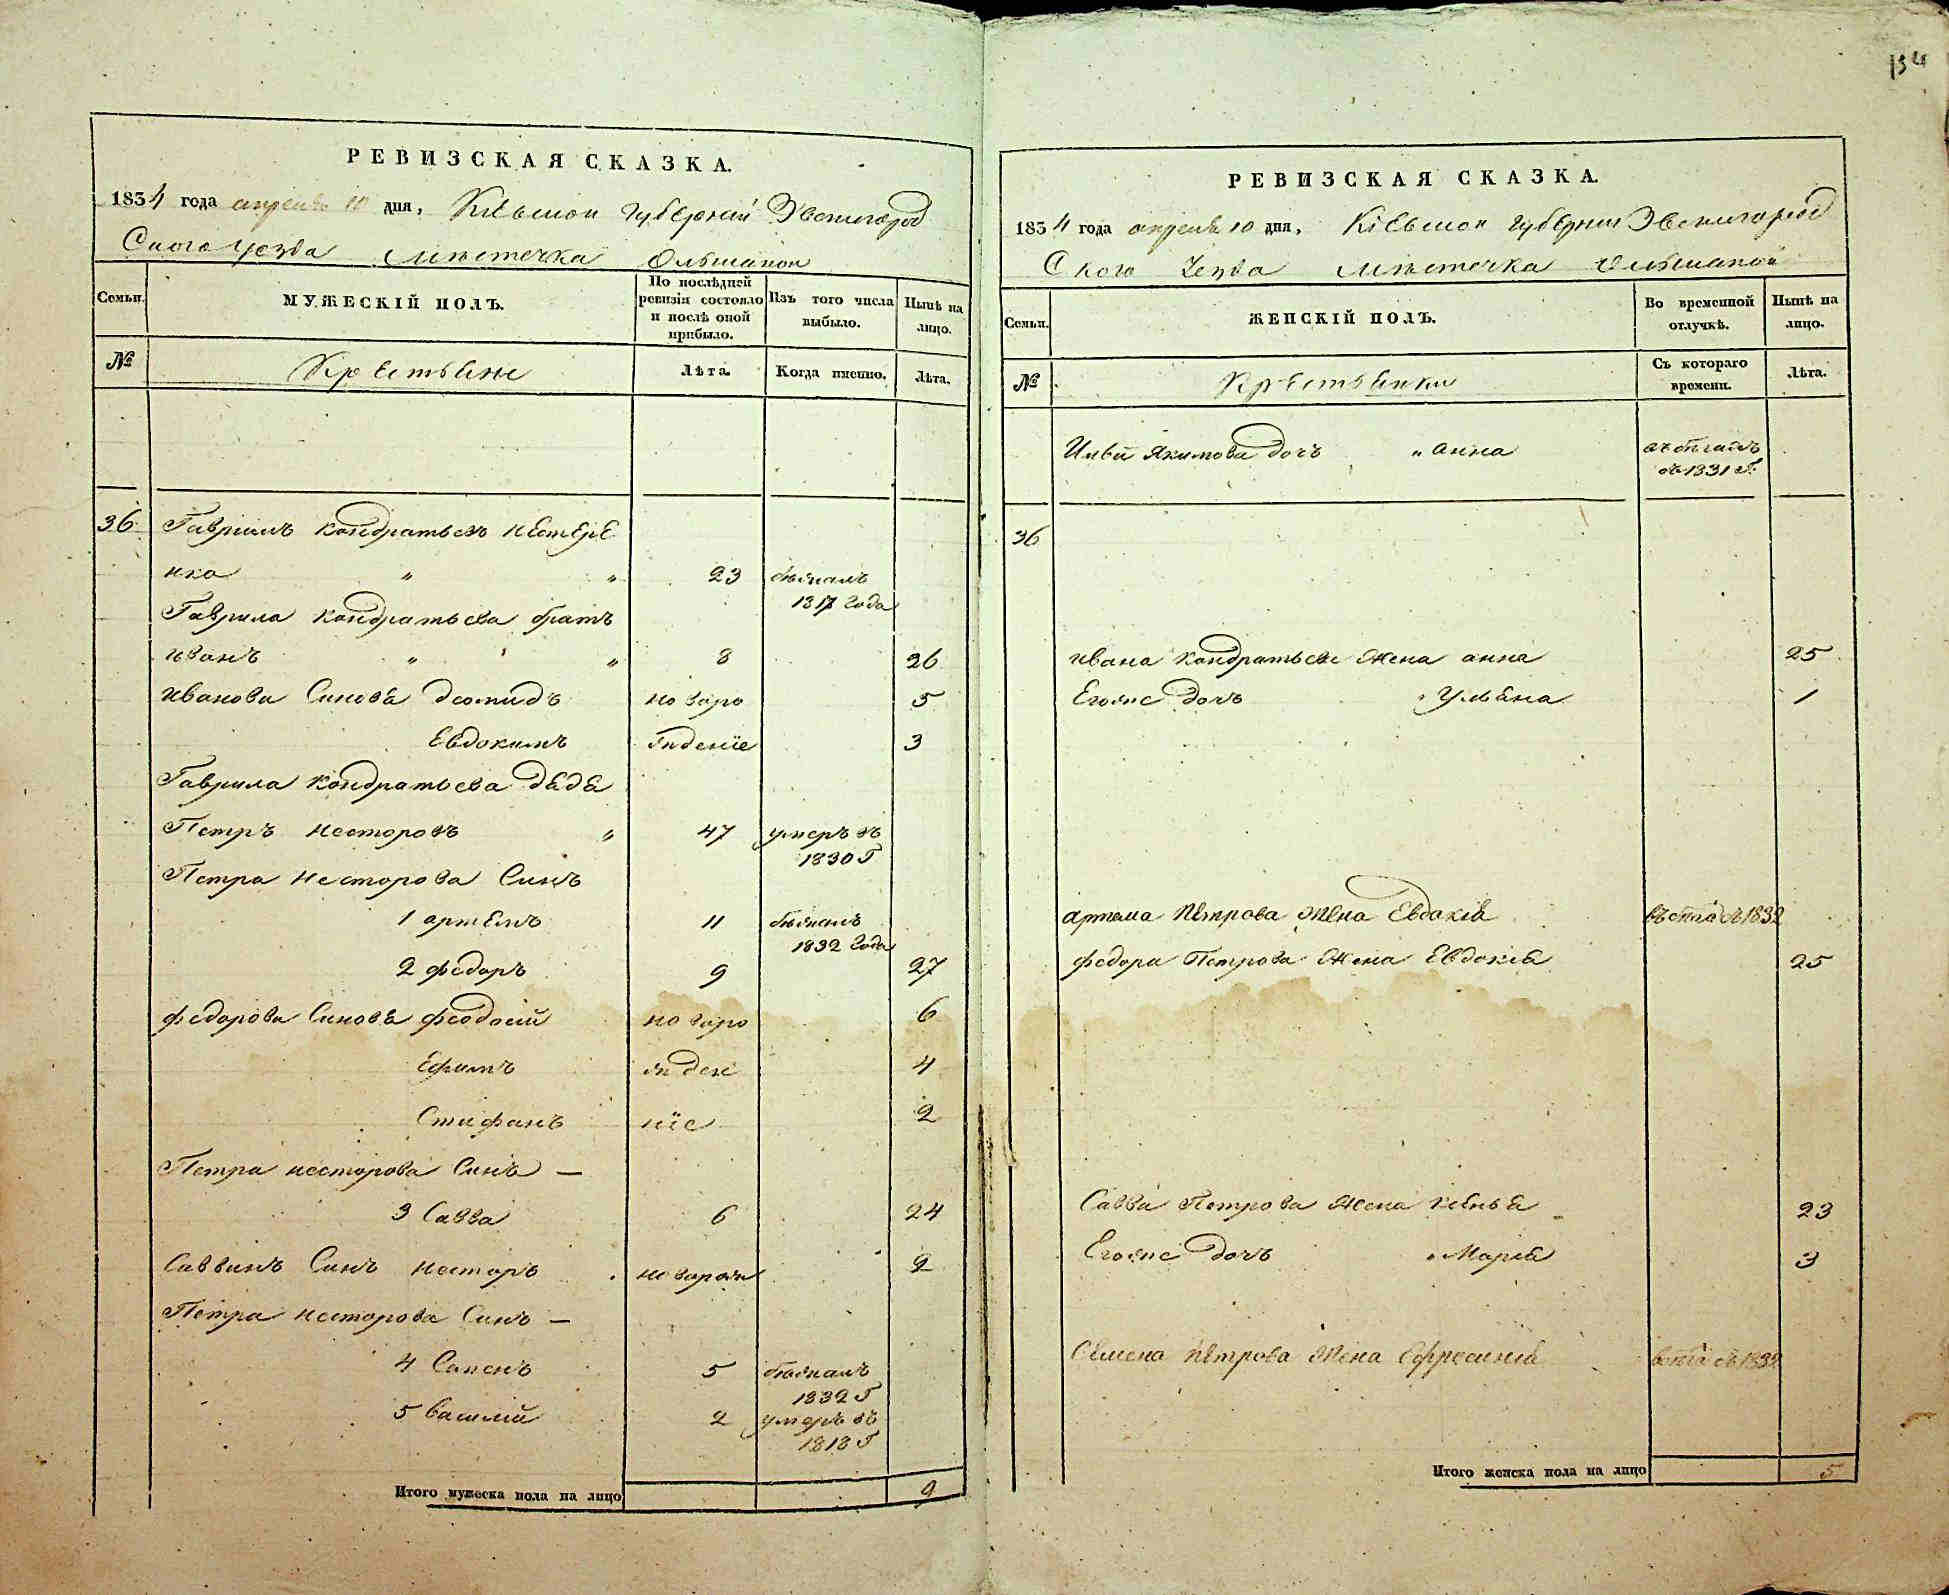 154
РЕВИЗСКАЯ СКАЗКА.
1834 года апреля 10 дня, Кіевской губерніи Звенигород
Ского уезда мѣстечка Ольшаной
Семьи.
МУЖЕСКІЙ ПОЛЪ.
По послѣдней ревизіи состояло и послѣ оной прибыло.
Изъ того числа выбыло.
Нынѣ на лицо.
№
Крестьяне
Лѣта.
Когда именно.
Лѣта.
36 Гаврилъ Кондратьевъ Нестере
нко " " 23 бѣжалъ
1817 Года
Гаврила Кондратьева братъ
Иванъ " " 8 26
Иванова Синовя Деомидъ новоро 5
Евдокимъ жденіе 3
Гаврила Кондратьева дядя
Петръ Несторовъ " 47 умеръ въ
1830 Г
Петра Несторова Синъ
1 артемъ 11 бѣжалъ
1832 Года
2 федоръ 9 27
федорова Синовя феодосій новоро 6
Ефимъ жден 4
Стифанъ ніе 2
Петра несторова Синъ —
3 Савва 6 24
Саввинъ Синъ Несторъ новорож 2
Петра Несторова Синъ —
4 Семенъ 5 бѣжалъ
1832 Г
5 Василій 2 умеръ въ
1818 Г
Итого мужеска пола на лицо 9
РЕВИЗСКАЯ СКАЗКА.
1834 года апреля 10 дня, Кіевской губерніи Звенигород
Ского уезда мѣстечка Ольшаной
Семьи.
ЖЕНСКІЙ ПОЛЪ.
Во временной отлучкѣ.
Нынѣ на лицо.
№
Крестьянки
Съ котораго времени.
Лѣта.
Якимова дочъ " анна
съ 1831 Г.
36
Ивана Кондратьева жена анна 25
Егоже дочъ " Ульяна 1
артема Петрова жена Евдокія съ 1832
федора Петрова жена Евдокія 25
Савви Петрова жена 23
Егоже дочъ " Марія 3
Семена Петрова жена Ефросинія съ 1832
Итого женска пола на лицо 5